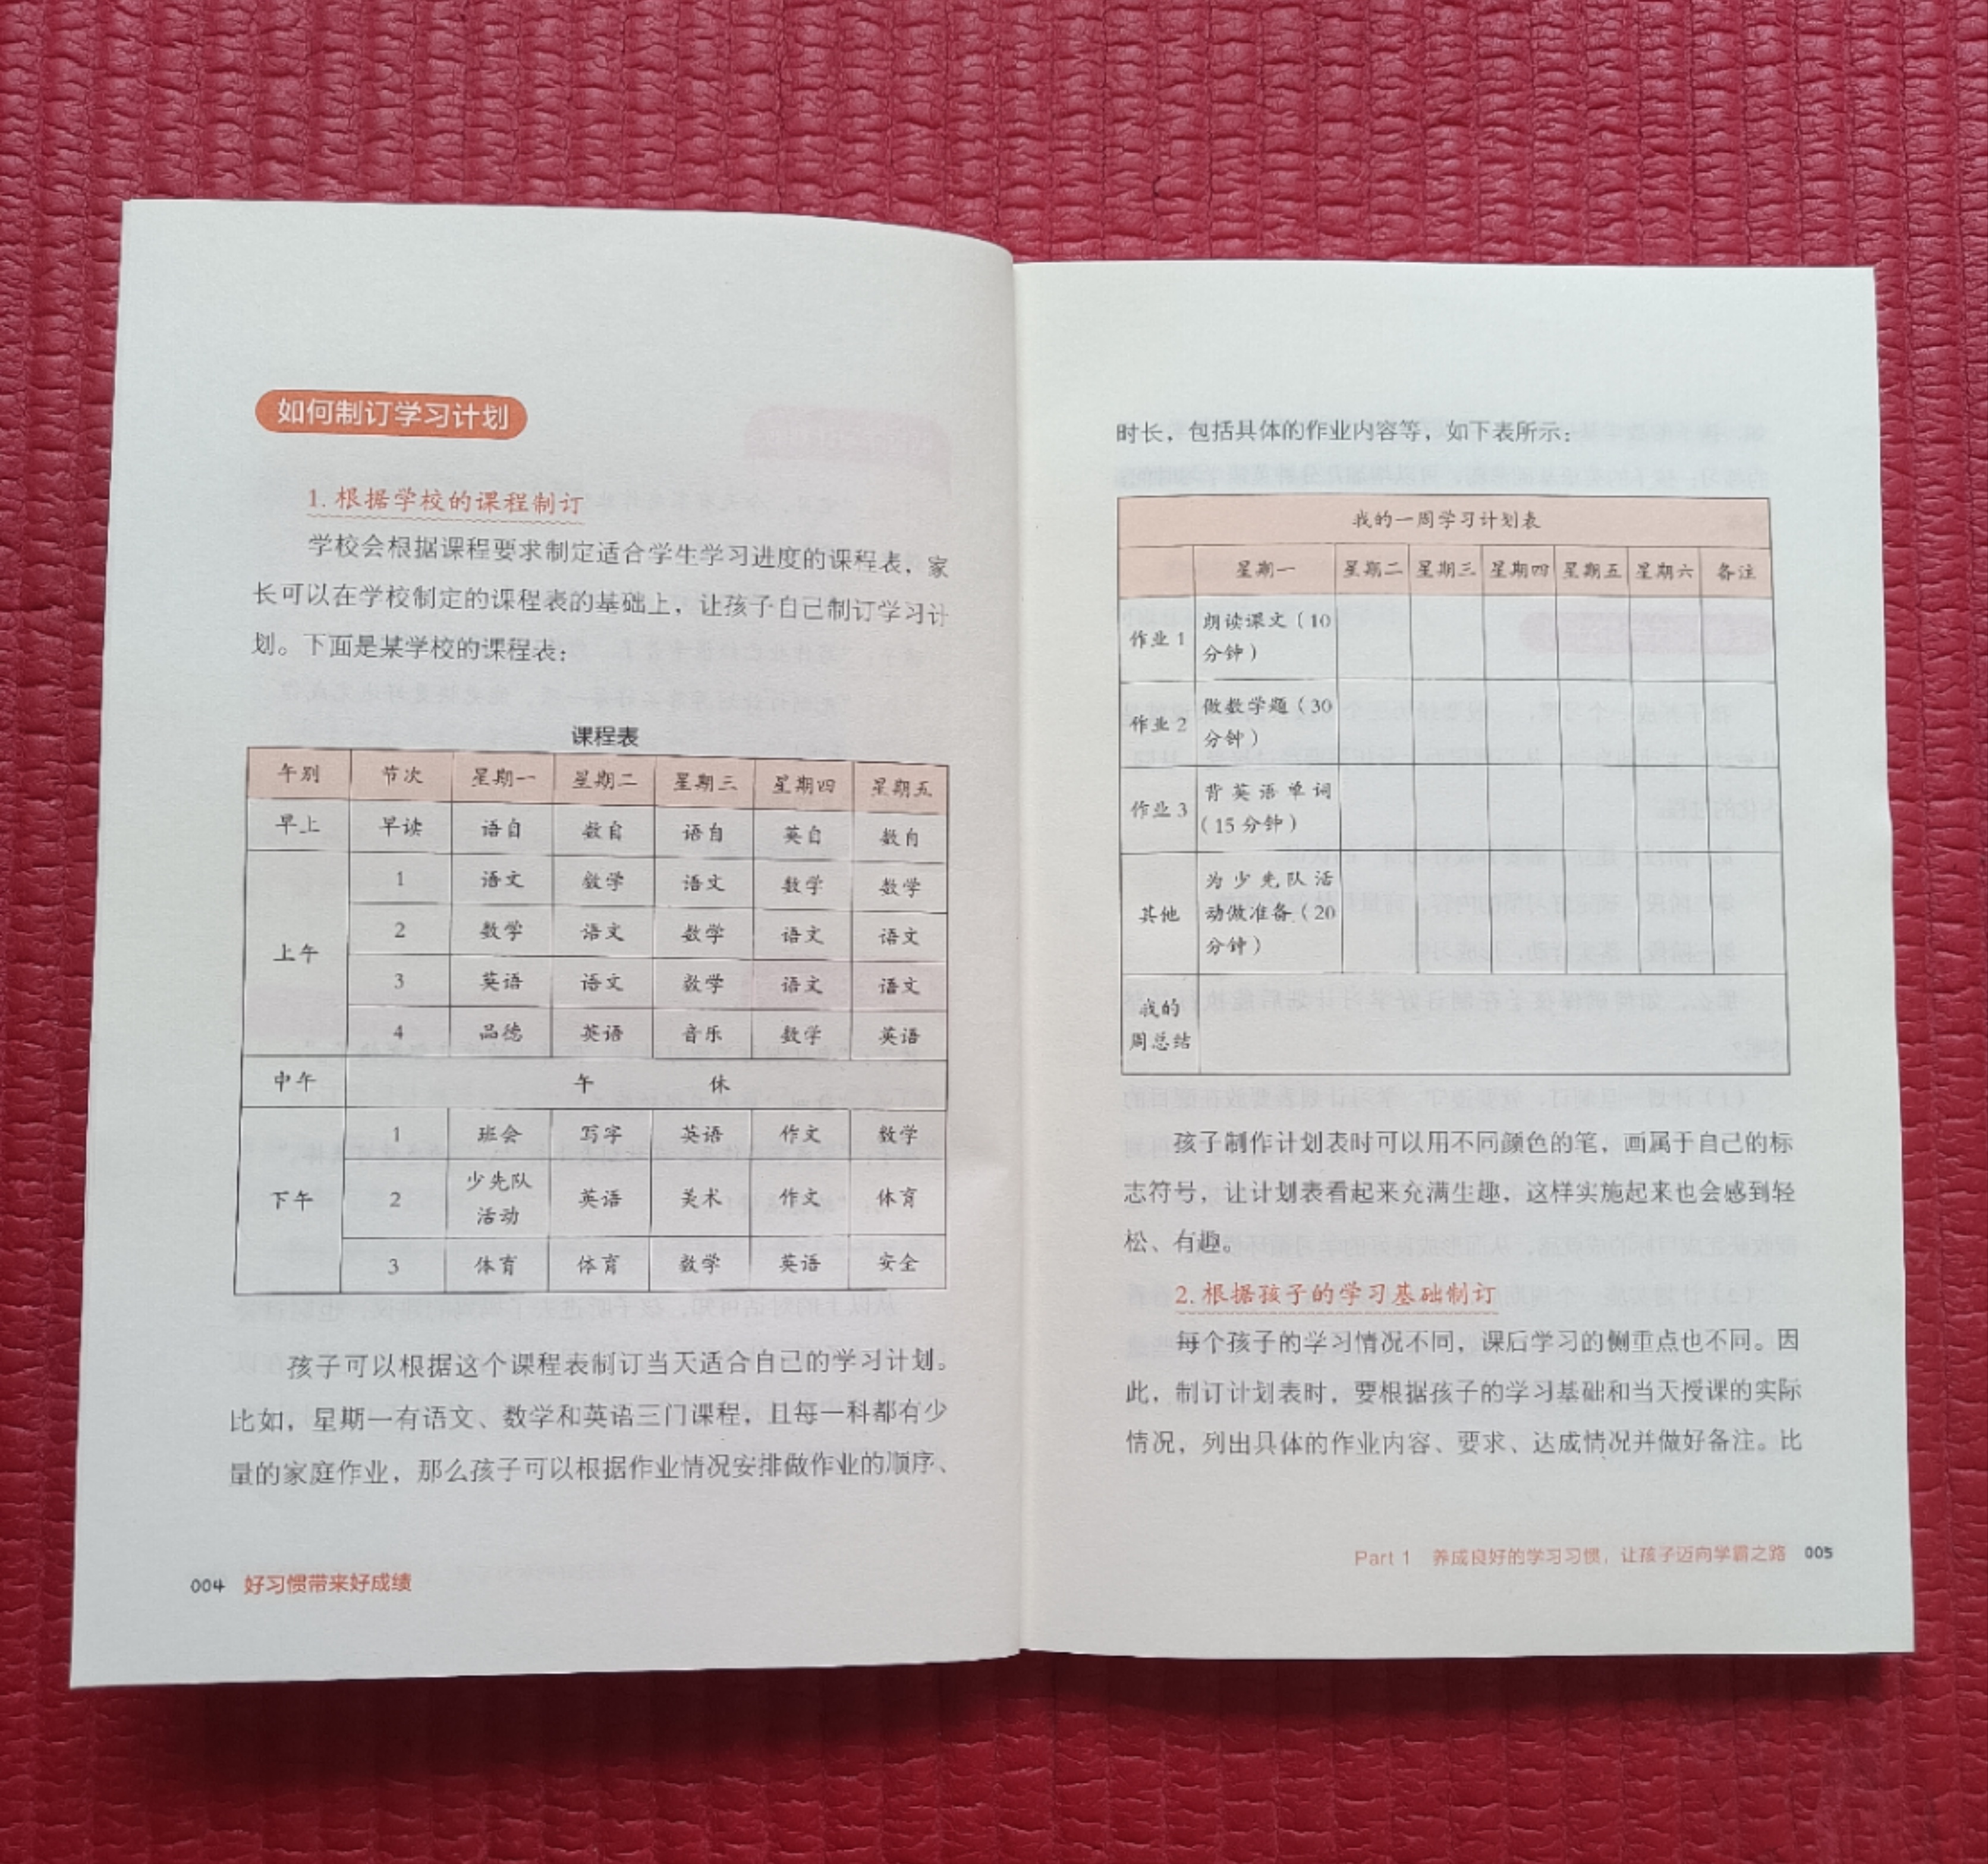 如何制订学习计划
1.根据学校的课程制订
学校会根据课程要求制定适合学生学习进度的课程表，家
长可以在学校制定的课程表的基础上，让孩子自己制订学习计
划。下面是某学校的课程表：
课程表
午别 节次 星期一 星期二 星期三 星期四 星期五
早上 早读 语自 数自 语自 英自 数自
上午
1 语文 数学 语文 数学 数学
2 数学 语文 数学 语文 语文
3 英语 语文 数学 语文 语文
4 品德 英语 音乐 数学 英语
中午 午 休
下午
1 班会 写字 英语 作文 数学
2 少先队 英语 美术 作文 体育
活动
3 体育 体育 数学 英语 安全
孩子可以根据这个课程表制订当天适合自己的学习计划。
比如，星期一有语文、数学和英语三门课程，且每一科都有少
量的家庭作业，那么孩子可以根据作业情况安排做作业的顺序、
004 好习惯带来好成绩
时长，包括具体的作业内容等，如下表所示：
我的一周学习计划表
星期一 星期二 星期三 星期四 星期五 星期六 备注
作业1 朗读课文（10
分钟）
作业2 做数学题（30
分钟）
作业3 背英语单词
（15分钟）
其他 为少先队活
动做准备（20
分钟）
我的
周总结
孩子制作计划表时可以用不同颜色的笔，画属于自己的标
志符号，让计划表看起来充满生趣，这样实施起来也会感到轻
松、有趣。
2.根据孩子的学习基础制订
每个孩子的学习情况不同，课后学习的侧重点也不同。因
此，制订计划表时，要根据孩子的学习基础和当天授课的实际
情况，列出具体的作业内容、要求、达成情况并做好备注。比
Part 1 养成良好的学习习惯，让孩子迈向学霸之路 005